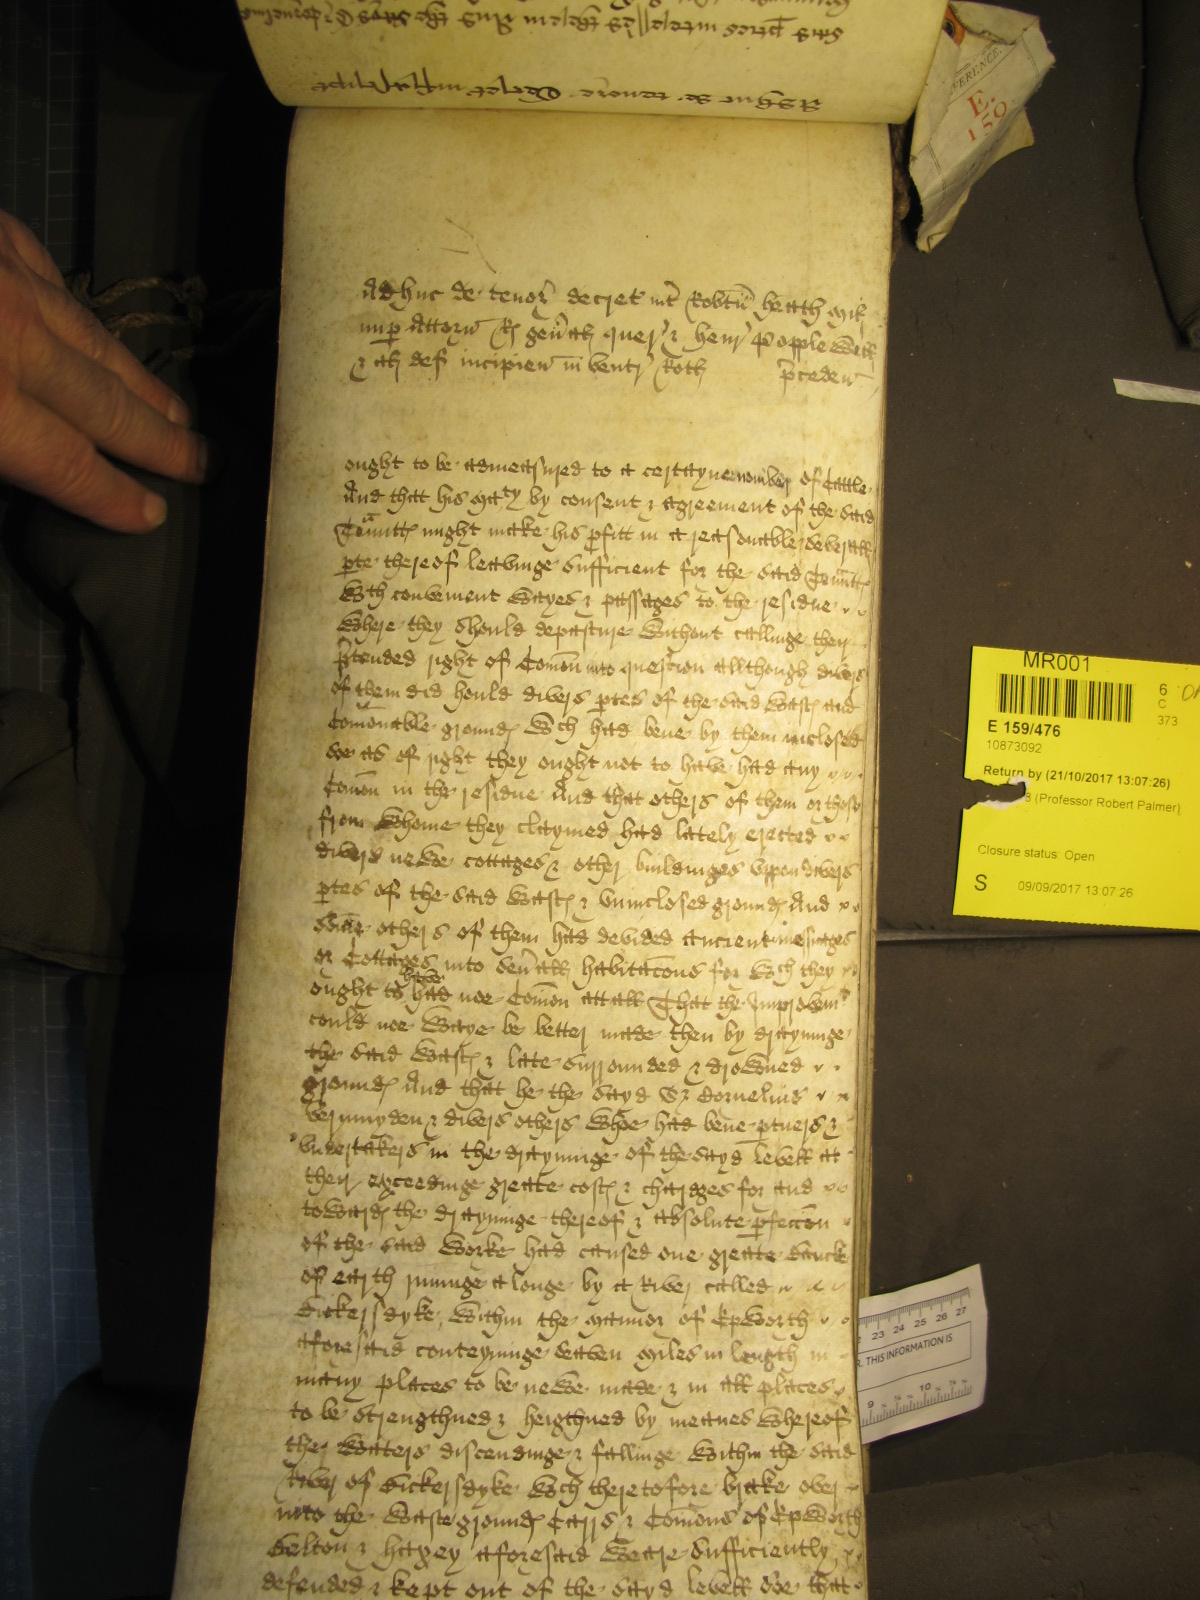 Adhuc de tenor decret int Robtū heath mil
nup Attorn R genāl quer & henr Popplewell
& al def incipien in ventr Rotli pceden
ought to be admeasured to a certayne nomber of Cattle
And that his Maty by consent & agreement of the said
Tenntes might make his pfitt in a reasonable severall
pte thereof leavinge sufficient for the said Tennts
wth convenient wayes & passages to the residue
where they should depasture without callinge their
ptended right of Comōn into question allthough divers
of them did hould divers ptes of the said wast and
comōnable ground wch had bene by them inclosed
soe as of right they ought not to have had any
Comōn in the residue And that others of them or those
from whome they claymed had lately erected
divers newe cottages & other buildinges vppon divers
ptes of the said wast & vninclosed ground And
others of them had devided ancient mesuages
or Cottages into sevall habitacōns for wch they
ought to have had noe Comōn att all That the Improvemt
could noe waye be better made then by drayninge
the said wast & late surrounded & drowned
ground And that he the sayd Sr Cornelius
Vermuyden & divers others whoe had bene ptners &
vndertakers in the drayninge of the sayd levell att
their exceedinge greate cost & chardges for and
toward the drayninge thereof & absolute pfeccōn
of the said worke had caused one greate banck
of earth runinge a longe by a River called
Bickersdyke within the Mannor of Epworth
aforesaid conteyninge seaven miles in length in
many places to be newe made & in all places
to be strengthned & heigthned by meanes whereof
the waters discendinge & fallinge within the said
River of Bickersdyke wch theretofore brake over
into the waste ground Carrs & Comōns of Epworth
Belton & haxey aforesaid weare sufficiently
defended & kept out of the sayd levell soe that
REFERENCE.
E.
159
MR001
6
C
373
E 159/476
10873092
Return by (21/10/2017 13:07:26)
(Professor Robert Palmer)
Closure status: Open
S 09/09/2017 13:07:26
23 24 25 26 27
THIS INFORMATION IS
9 10